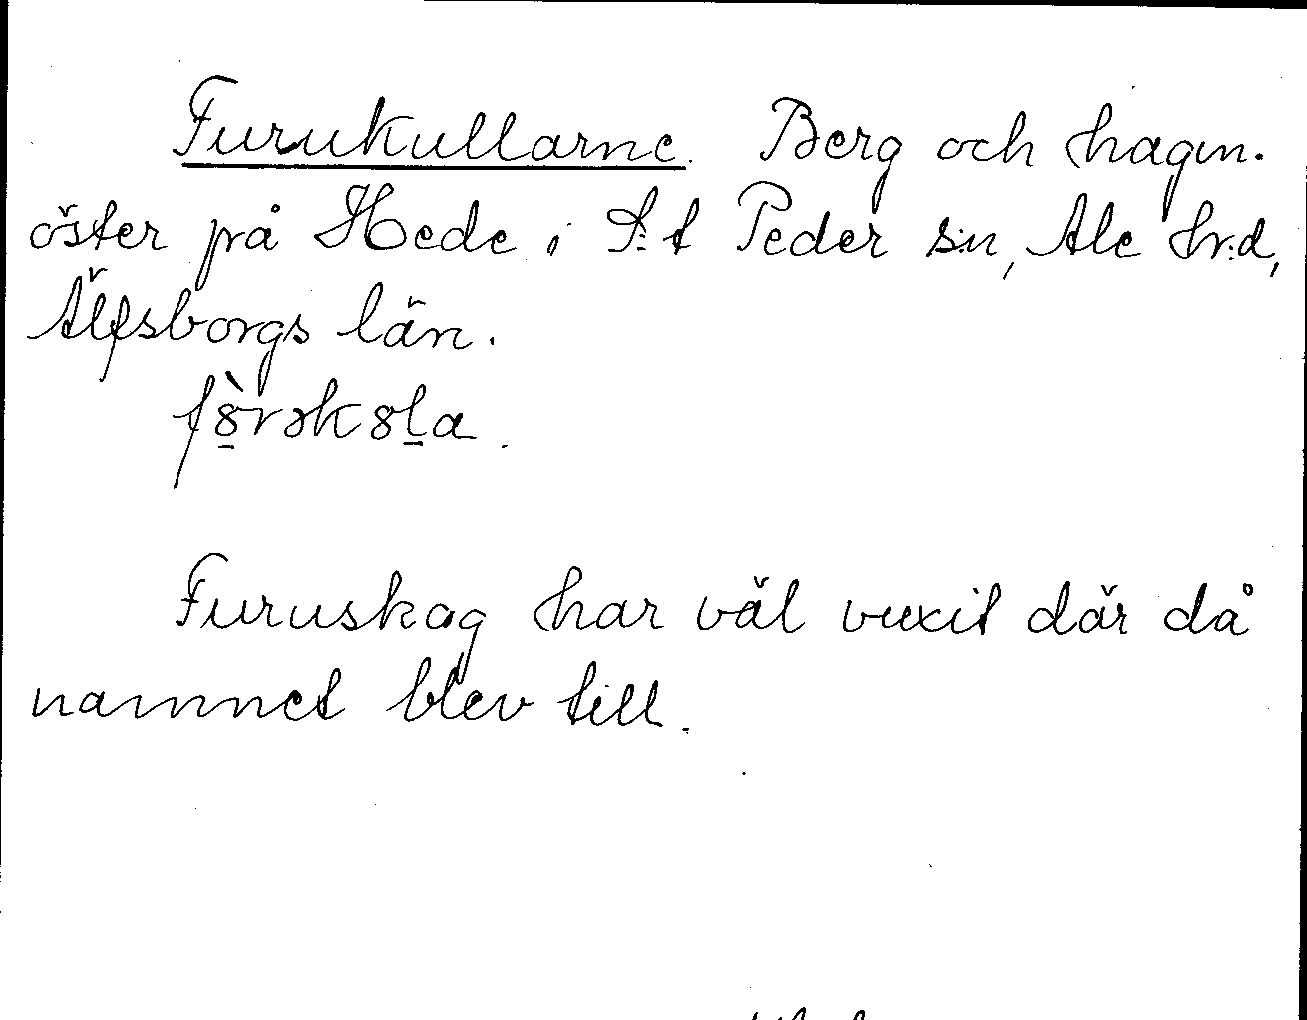 Furukullarne. Berg och hagm.
öster på Hede i S:t Peder s:n, Ale hr:d,
Älfsborgs län.
Furuskog har väl vuxit där då
namnet blev till.